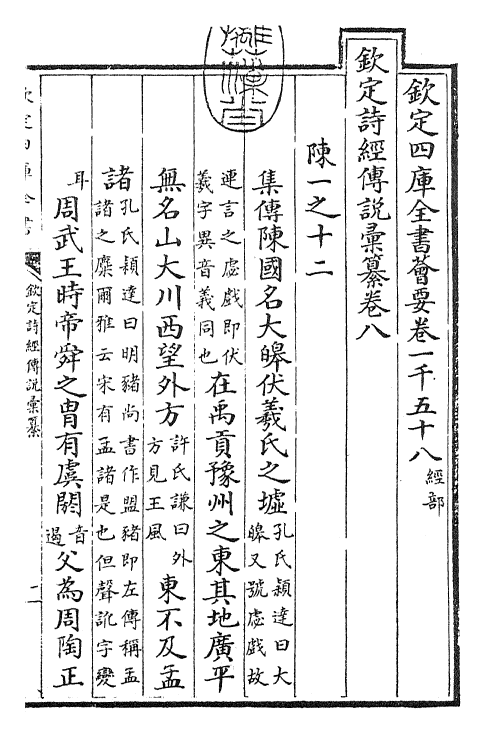 欽定四庫全書薈要卷一千五十八 經部
欽定詩經傳說彙纂卷八
陳一之十二
集傳陳國名大皞伏羲氏之墟孔氏穎達曰大皞又號虙戲故
連言之虙戲即伏羲字異音義同也在禹貢豫州之東其地廣平
無名山大川西望外方許氏謙曰外方見王風東不及孟
諸孔氏穎達曰明豬尚書作盟豬即左傳稱孟諸之麋爾雅云宋有孟諸是也但聲訛字變
耳周武王時帝舜之胄有虞閼音遏父為周陶正
欽定四庫全書 欽定詩經傳說彙纂 一